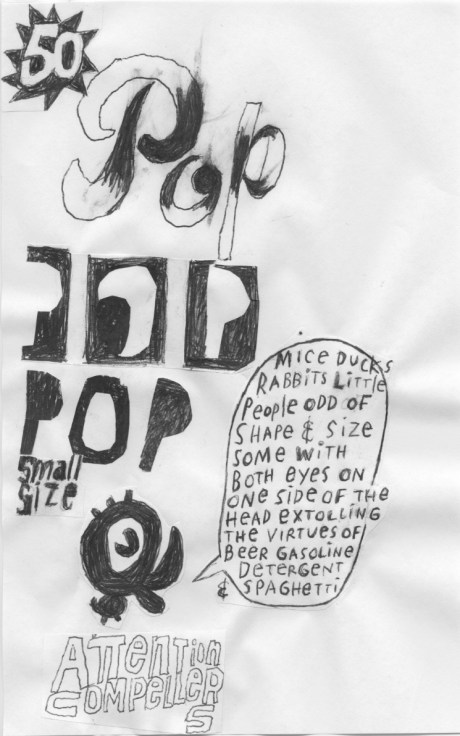 50
Pop
POP
POP
Small
Size
MICE DUCKS
RABBITS LITTLE
PEOPLE ODD OF
SHAPE & SIZE
SOME WITH
BOTH EYES ON
ONE SIDE OF THE
HEAD EXTOLLING
THE VIRTUES OF
BEER GASOLINE
DETERGENT
& SPAGHETTI
ATTENTION
COMPELLERS